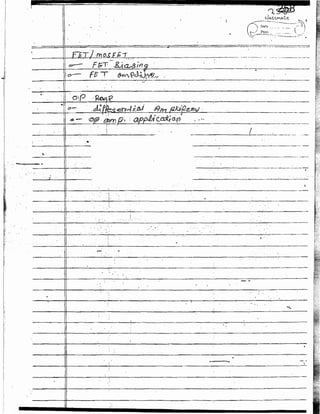 classmate
Date
Page
FET / MOSFET
FET Biasing
FET amplifier
OP Amp
differential Amplifier
op amp. application